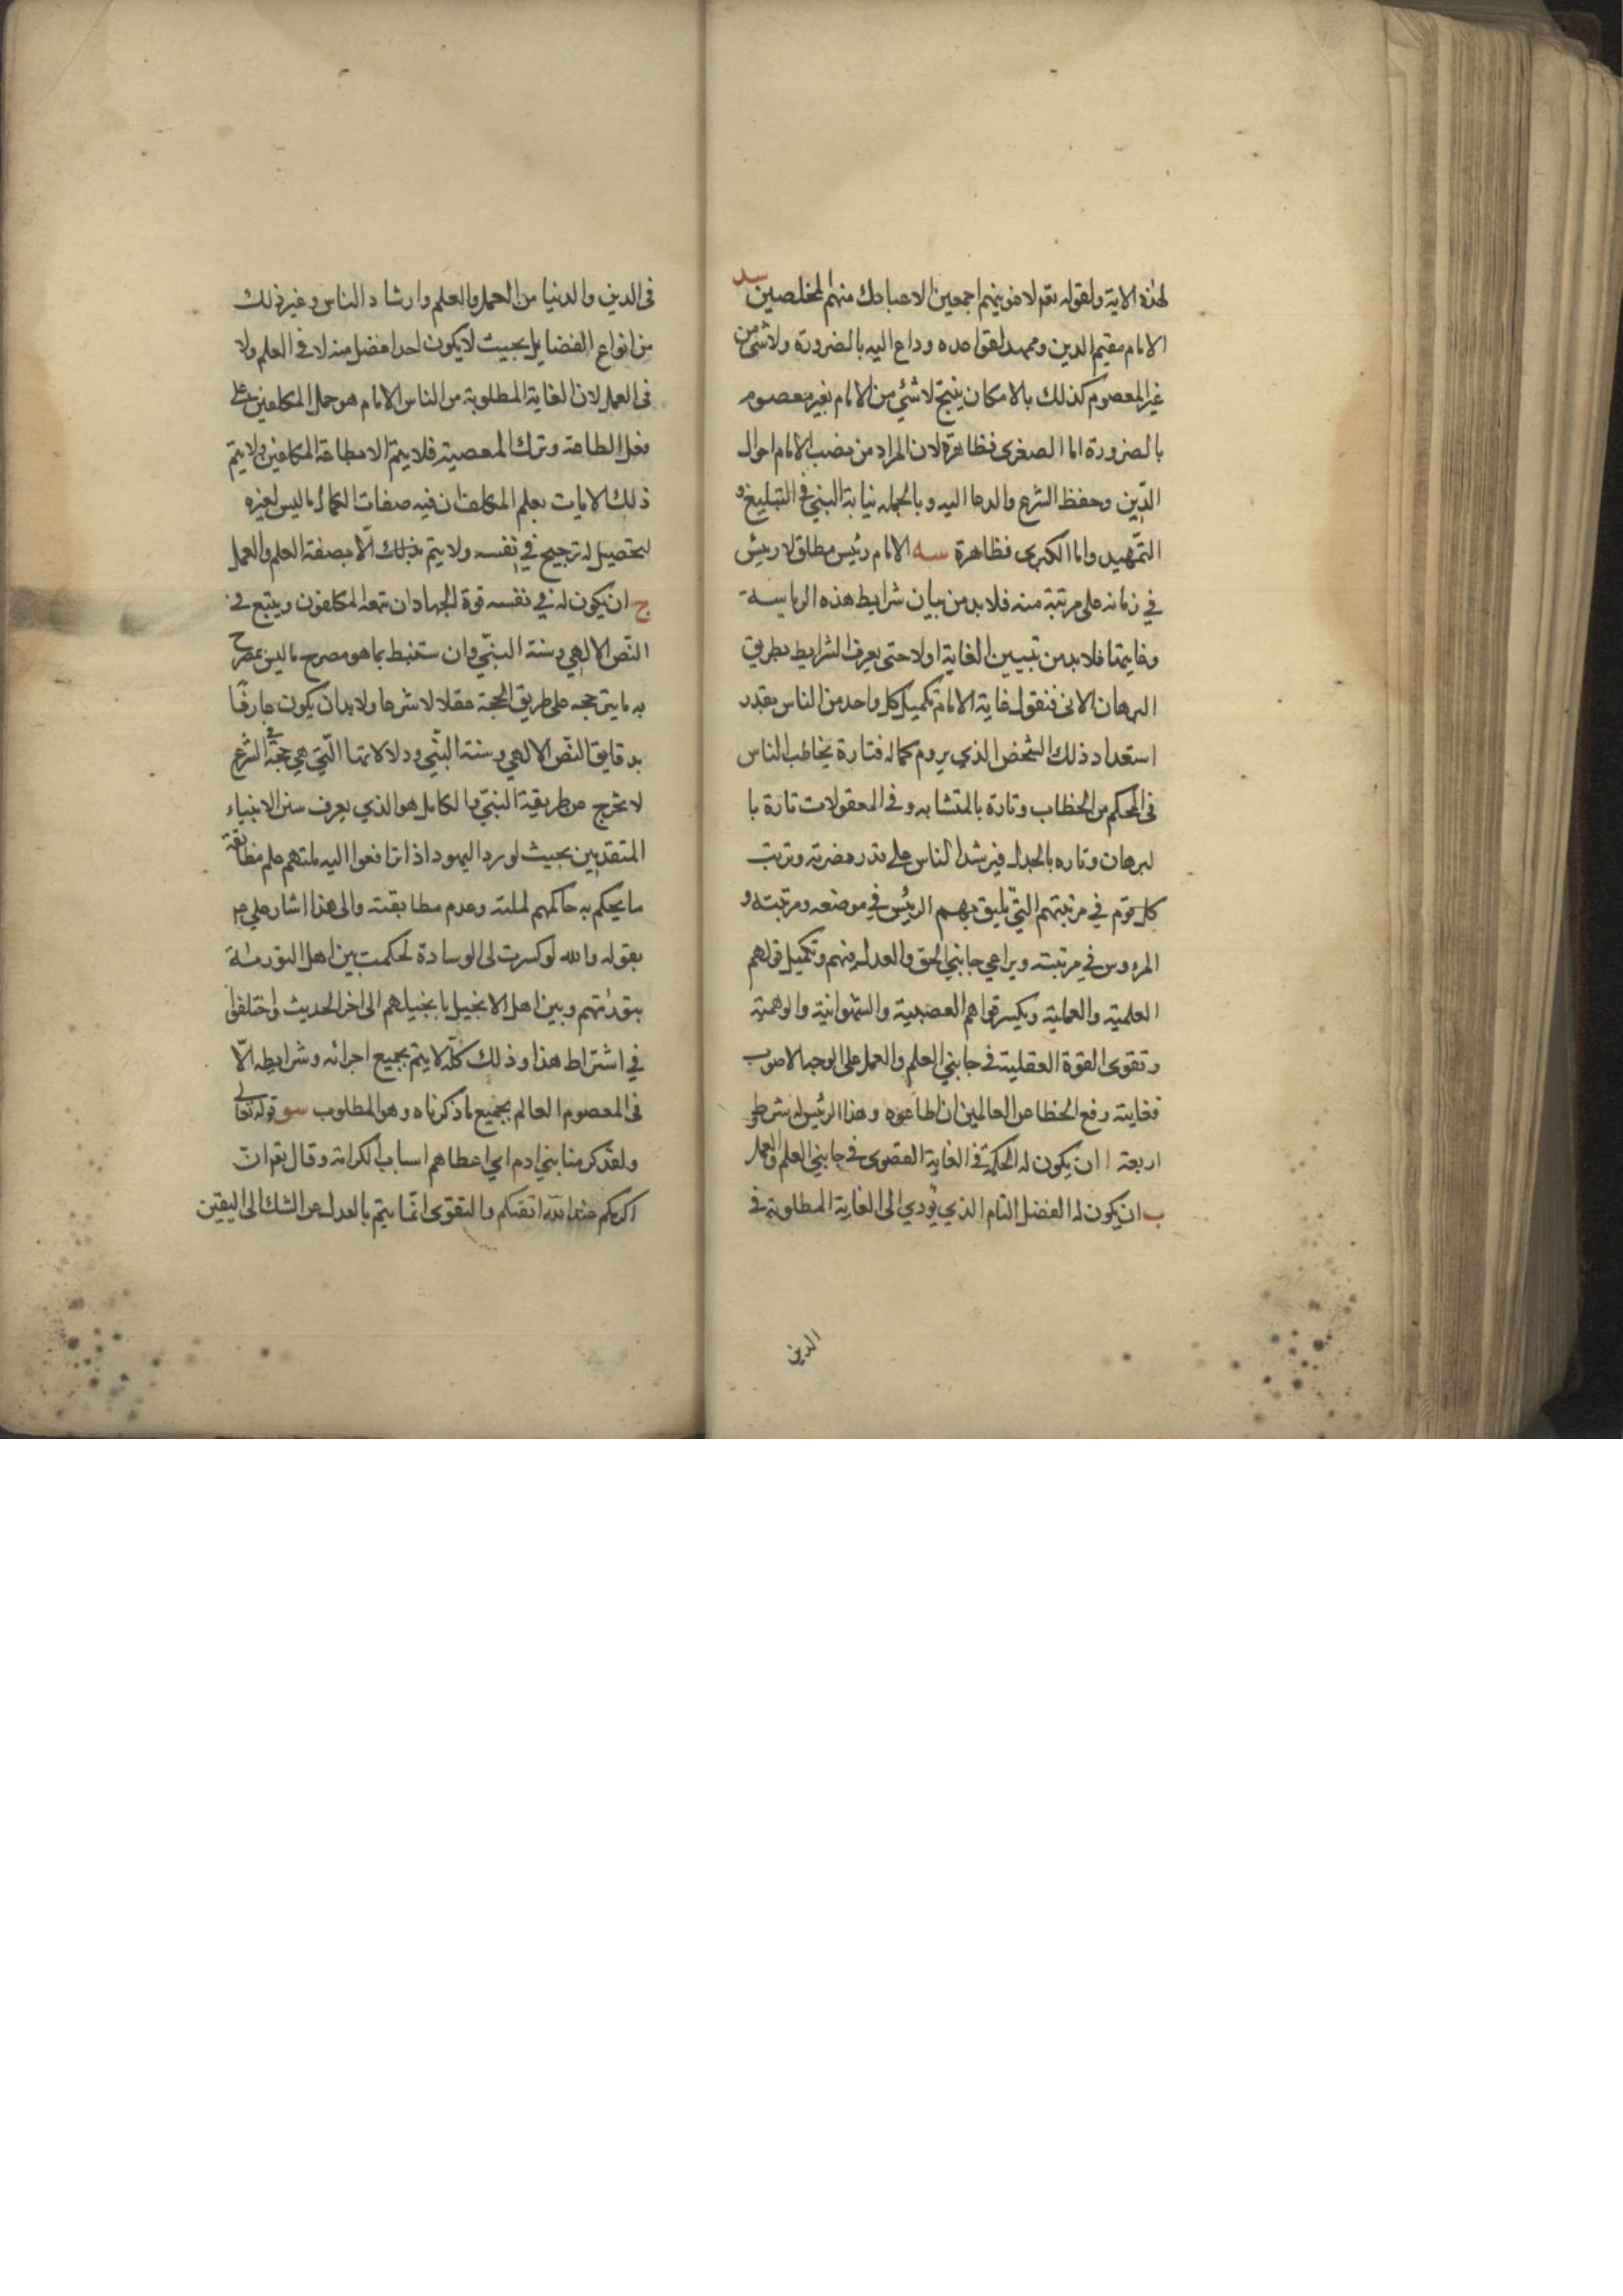 لهذه الاية ولقوله تعم لاغوينهم اجمعين الا عبادك منهم المخلصين سد
الامام مقيم الدين وممهد لقواعده وداع اليه بالضرورة ولا شئ من
غير المعصوم كذلك بالامكان ينتج لا شئ من الامام بغير معصوم
بالضرورة اما الصغرى فظاهرة لان المراد من نصب الامام احوال
الدين وحفظ الشرع والدعا اليه وبالجمله نيابة النبي في التبليغ و
التمهيد واما الكبرى فظاهرة سه الامام رئيس مطلق لا رئيس
في زمانه على مرتبة منه فلا بد من بيان شرايط هذه الرياسة
وغايتها فلا بد من تبيين الغاية اولا حتى يعرف الشرايط بطريق
البرهان الانى فنقول غاية الامام تكميل كل واحد من الناس بقدر
استعداد ذلك الشخص الذي يروم كماله فتارة يخاطب الناس
فى المحكم من الخطاب وتارة بالمتشابه وفى المعقولات تارة با
لبرهان وتاره بالجدل فيرشد الناس على قدر وترتب
كل قوم في مرتبتهم التي تليق بهم الرئيس في موضعه ومرتبته و
المرءوس في مرتبته ويراعي جانبي الحق والعدل فيهم وتكميل قواهم
العلمية والعملية ويكسر قواهم الغضبية والشهوانية والوهمية
وتقوى القوة العقلية في جانبي العلم والعمل على الوجه الاصوب
فغايته رفع الخطا عن العالمين ان اطاعوه وهذا الرئيس له شروط
اربعة ا ان يكون له الحكمة في الغاية القصوى في جانبي العلم والعمل
ب ان يكون له الفضل التام الذي يؤدي الى الغاية المطلوبة في
الدين
فى الدين والدنيا من العمل والعلم وارشاد الناس وغير ذلك
من انواع الفضايل بحيث لا يكون احد افضل منه لا في العلم ولا
فى العمل لان الغاية المطلوبة من الناس الامام هو حمل المكلفين على
فعل الطاعة وترك المعصية فلا يتم الا بطاعة المكلفين ولا يتم
ذلك الا بان يعلم المكلف ان فيه صفات الكمال ما ليس لغيره
ليحصل له ترجيح في نفسه ولا يتم بذلك الا بصفة العلم والعمل
ج ان يكون له في نفسه قوة الجهاد ان تبعه المكلفون ويتبع في
النص الالهي وسنة النبي وان ستنبط بما هو مصرح ما ليس بمصرح
به ما يترجحه على طريق الحجة عقلا لا شرعا ولا بد ان يكون عارفا
بدقايق النص الالهي وسنة النبي ودلالاتها التي هي حجة في الشرع
لا تخرج عن طريقة النبي والكامل هو الذي يعرف سنن الانبياء
المتقدمين بحيث لو رد اليهود اذا ترافعوا اليه ملتهم علم مطابقة
ما يحكم به حاكمهم لملته وعدم مطابقته والى هذا اشار علي
بقوله والله لو كسرت لى الوسادة لحكمت بين اهل التورىة
بتورىتهم وبين اهل الانجيل بانجيلهم الى اخر الحديث واختلفوا
في اشتراط هذا وذلك كله لا يتم بجميع اجزائه وشرايطه الا
فى المعصوم العالم بجميع ما ذكرناه وهو المطلوب سو قوله تعالى
ولقد كرمنا بني ادم اي اعطاهم اسباب الكرامة وقال تعم ان
اكرمكم عند الله اتقىكم والتقوى انما يتم بالعدل عن الشك الى اليقين